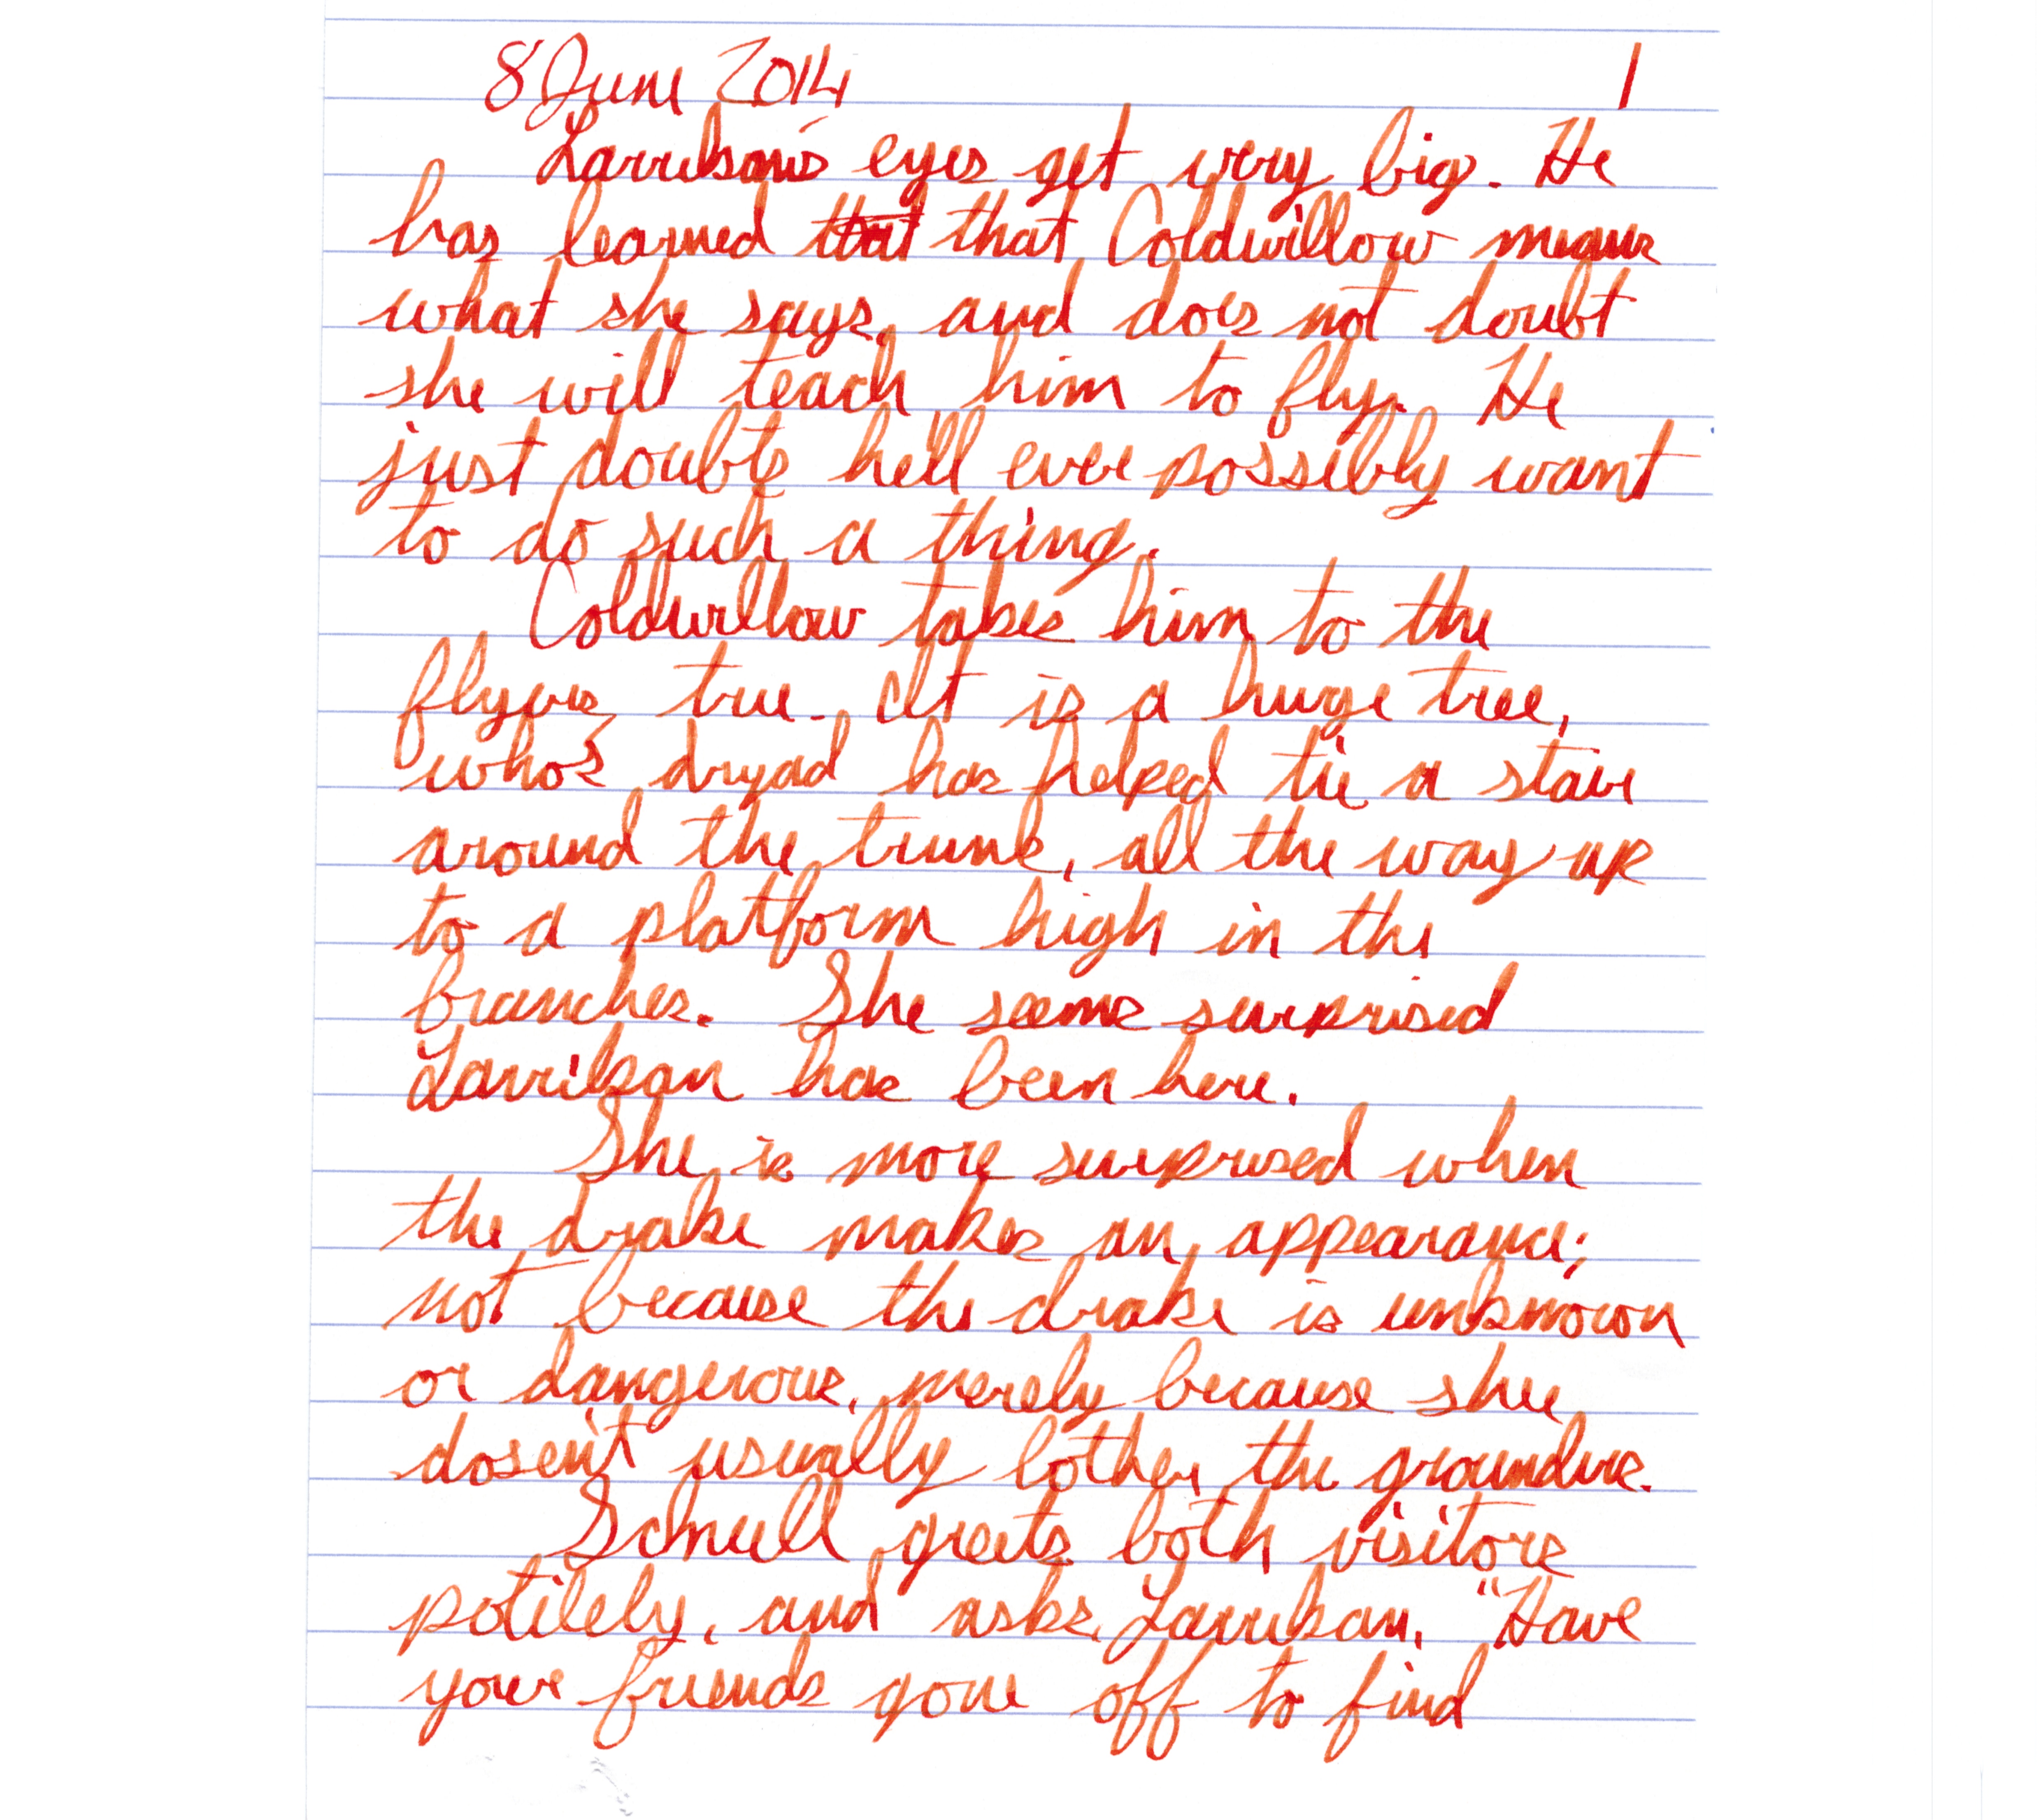 8 June 2014 1
Larrikan's eyes get very big. He
has learned that that Coldwillow means
what she says, and does not doubt
she will teach him to fly. He
just doubts he'll ever possibly want
to do such a thing.
Coldwillow takes him to the
flyers tree. It is a huge tree,
who's dryad has helped tie a stair
around the trunk, all the way up
to a platform high in the
branches. She seems surprised
Larrikan has been here.
She is more surprised when
the drake makes an appearance;
not because the drake is unknown
or dangerous, merely because shee
dosen't usually bother the
Schnell greets both visitors
potilely, and asks Larrikan, "Have
your friends gone off to find